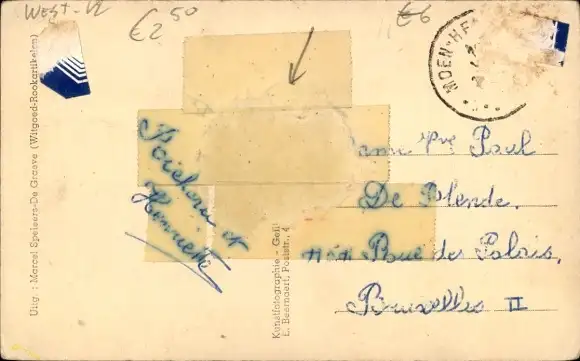 WEST-Vl
€2 50
€6
MOEN-HE
Uitg. : Marcel Speleers-De Graeve (Witgoed-Rookartikelen)
Kunstfotographie - Gell
E. Beernaert, Poststr., 4
et
Henriette
Paul
De Blende.
Rue des Palais,
Bruxelles II